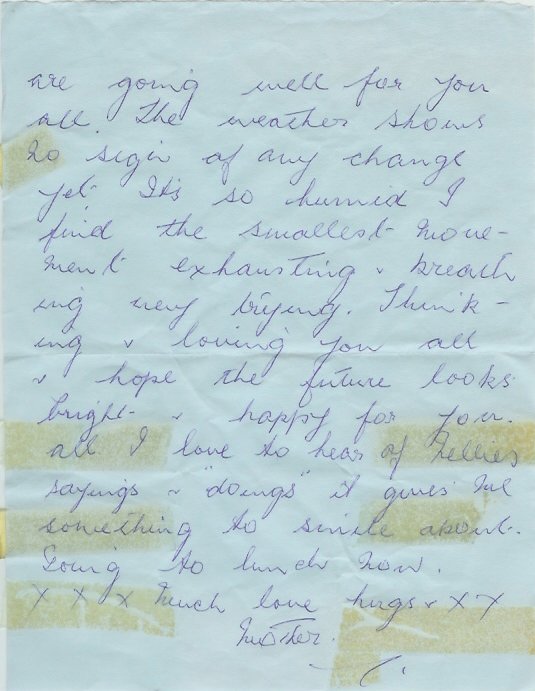 are going well for you
all. The weather shows
no sign of any change
yet. It's so humid I
find the smallest move-
ment exhausting & breath
ing very trying. Think-
ing & loving you all
& hope the future looks
bright & happy for you
all. I love to hear of Nellies
sayings & "doings" it gives me
something to smile about.
Going to lunch now.
x x x Much love hugs & x x
Mother.